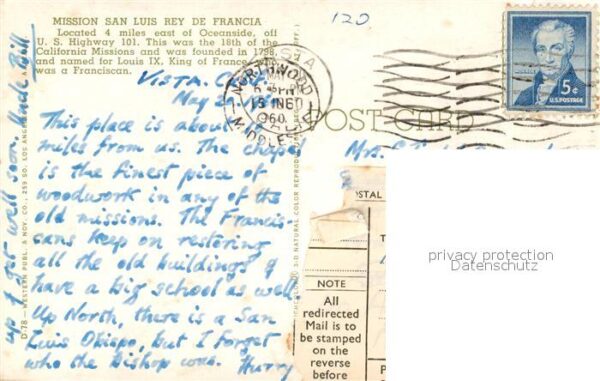 MISSION SAN LUIS REY DE FRANCIA
Located 4 miles east of Oceanside, off
U. S. Highway 101. This was the 18th of the
California Missions and was founded in 1798,
and named for Louis IX, King of France, who
was a Franciscan.
120
5¢
U.S. POSTAGE
VISTA
NORTHWOOD
6 45 PM
15 JNE
1960
MIDDLESEX
POST CARD
VISTA. Calif.
May 29
This place is about
miles from us. The chapel
is the finest piece of
woodwork in any of the
old missions. The Francis-
cans keep on restoring
all the old buildings &
have a big school as well
Up North, there is a San
Luis Obispo, but I forget
who the bishop was. Hurry
up & get well soon. Uncle Bill
Mrs.
D-78—WESTERN PUBL. & NOV. CO., 259 SO. LOS ANGELES
NATURAL COLOR REPRODUCTION
OSTAL
NOTE
All
redirected
Mail is to
be stamped
on the
reverse
before
privacy protection
Datenschutz